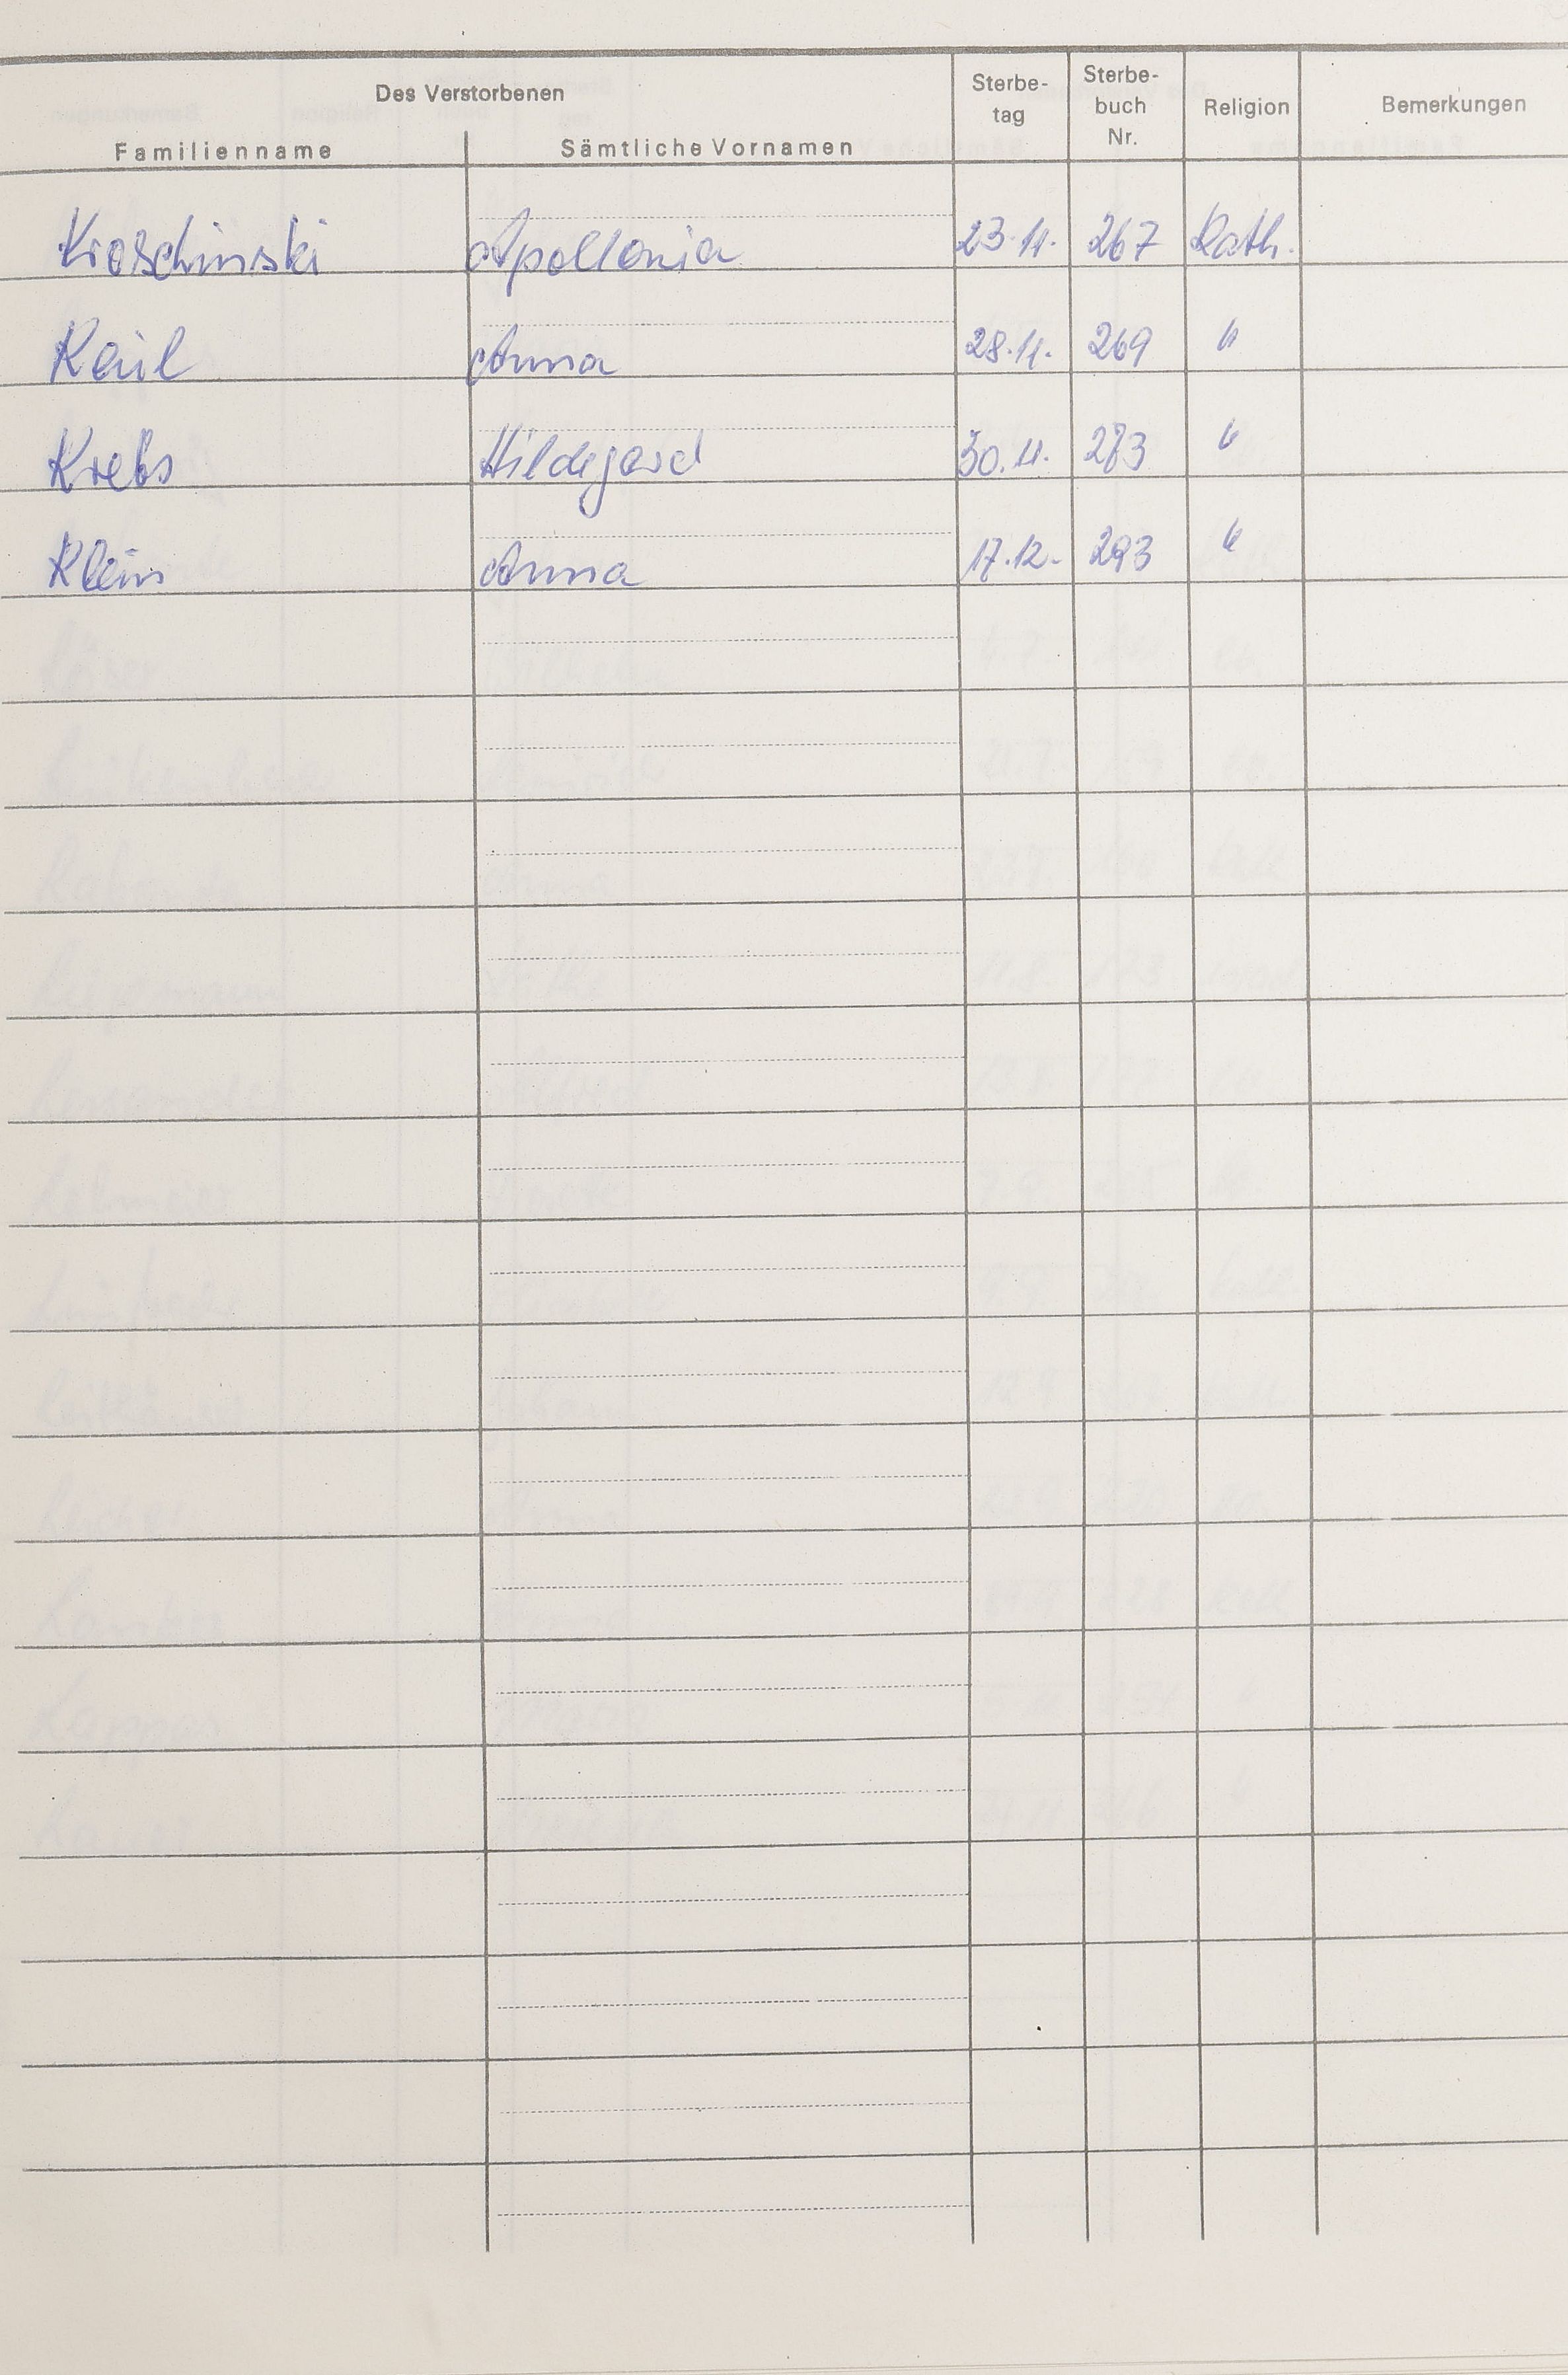 Des Verstorbenen
Familienname Sämtliche Vornamen Sterbe-tag Sterbe-buch Nr. Religion Bemerkungen
Kroschinski Apollonia 23.11. 267 Kath.
Keil Anna 28.11. 269 "
Krebs Hildegard 30.11. 273 "
Klein Anna 17.12. 293 "